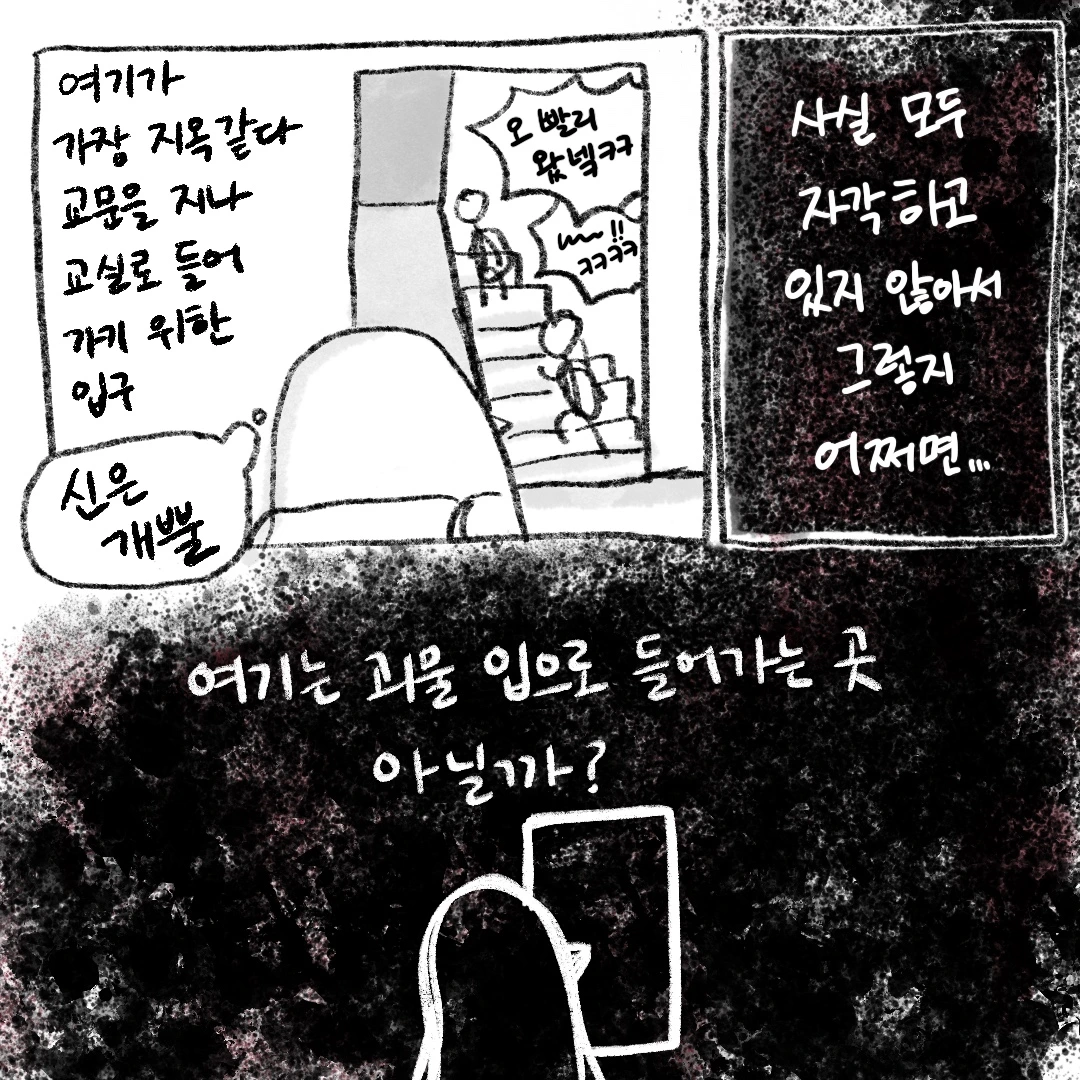 여기가
가장 지옥같다
교문을 지나
교실로 들어
가기 위한
입구
오 빨리
왔넼ㅋㅋ
!!
ㅋㅋㅋㅋ
신은
개뿔
사실 모두
자각하고
있지 않아서
그렇지
어쩌면...
여기는 괴물 입으로 들어가는 곳
아닐까?